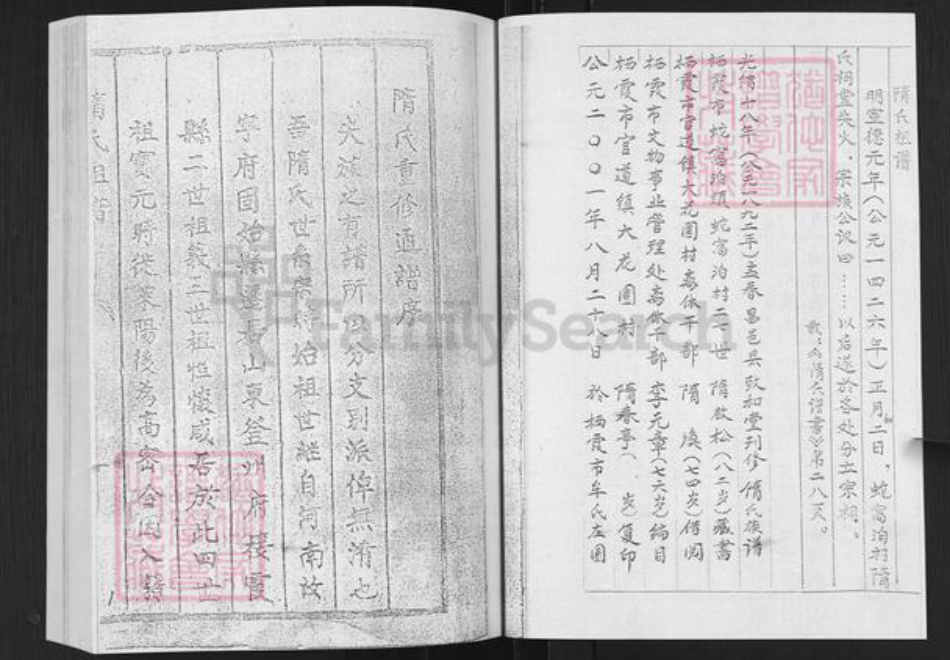 隋氏祖谱
明宣德元年(公元一四二六年)正月二日、蛇窩泊村隋
氏祠堂失火.宗族公议曰……以后遂於各处分立宗祠。
第二八一页。
光绪十八年(公元一八九二年)孟春昌邑县敦和堂刊修隋氏族谱
栖霞市蛇窩泊镇蛇窩泊村二一世 隋啟松(八二岁)藏書
栖霞市官道镇大花園村离休干部 隋煥(七四岁)借阅
栖霞市文物事业管理处离休干部 李元章(七六岁)编目
栖霞市官道镇大花園村 隋春亭( 岁)复印
公元二00一年八月二十八日 於栖霞市牟氏庄園
隋氏重修通譜序
夫族之有譜所以分支别派俾無淆也
吾隋氏世系 始祖世継自河南故
寧府固始縣遷居山東登州府棲霞
縣二世祖義三世祖惟懷咸居於此四世
祖寳元時徙莱陽後為高密令因入籍
FamilySearch